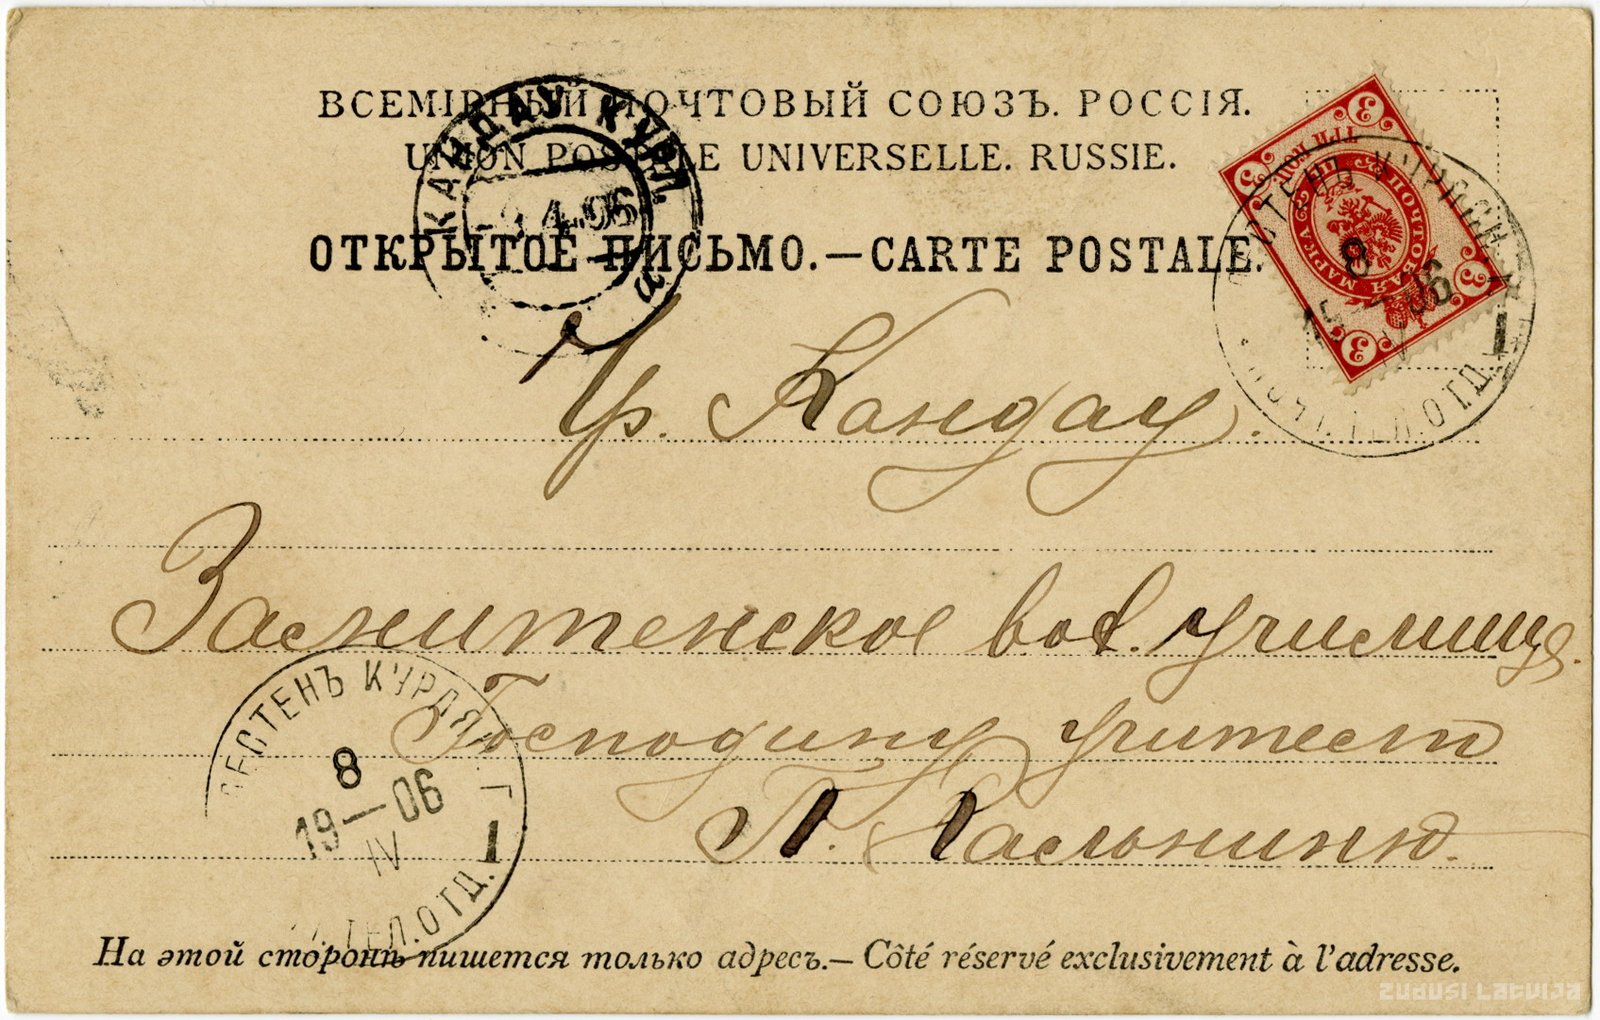 ВСЕМІРНЫЙ ПОЧТОВЫЙ СОЮЗЪ. РОССІЯ.
UNION POSTALE UNIVERSELLE. RUSSIE.
ОТКРЫТОЕ ПИСЬМО.—CARTE POSTALE.
КАНДАУ КУРЛ.
4.06
ПОЧТОВАЯ МАРКА
ТРИ КОП.
3 3 3 3
8
06
1
ОТД.
Чр. Кандау.
Замитенское вол. училище.
Господину учител
П. Кальниню.
СЕСТЕНЪ КУРЛЯН. Г.
8
19—06
IV
1
ТЕЛ.ОТД.
На этой сторонѣ пишется только адресъ.— Côté réservé exclusivement à l'adresse.
ZUDUSI LATVIJA